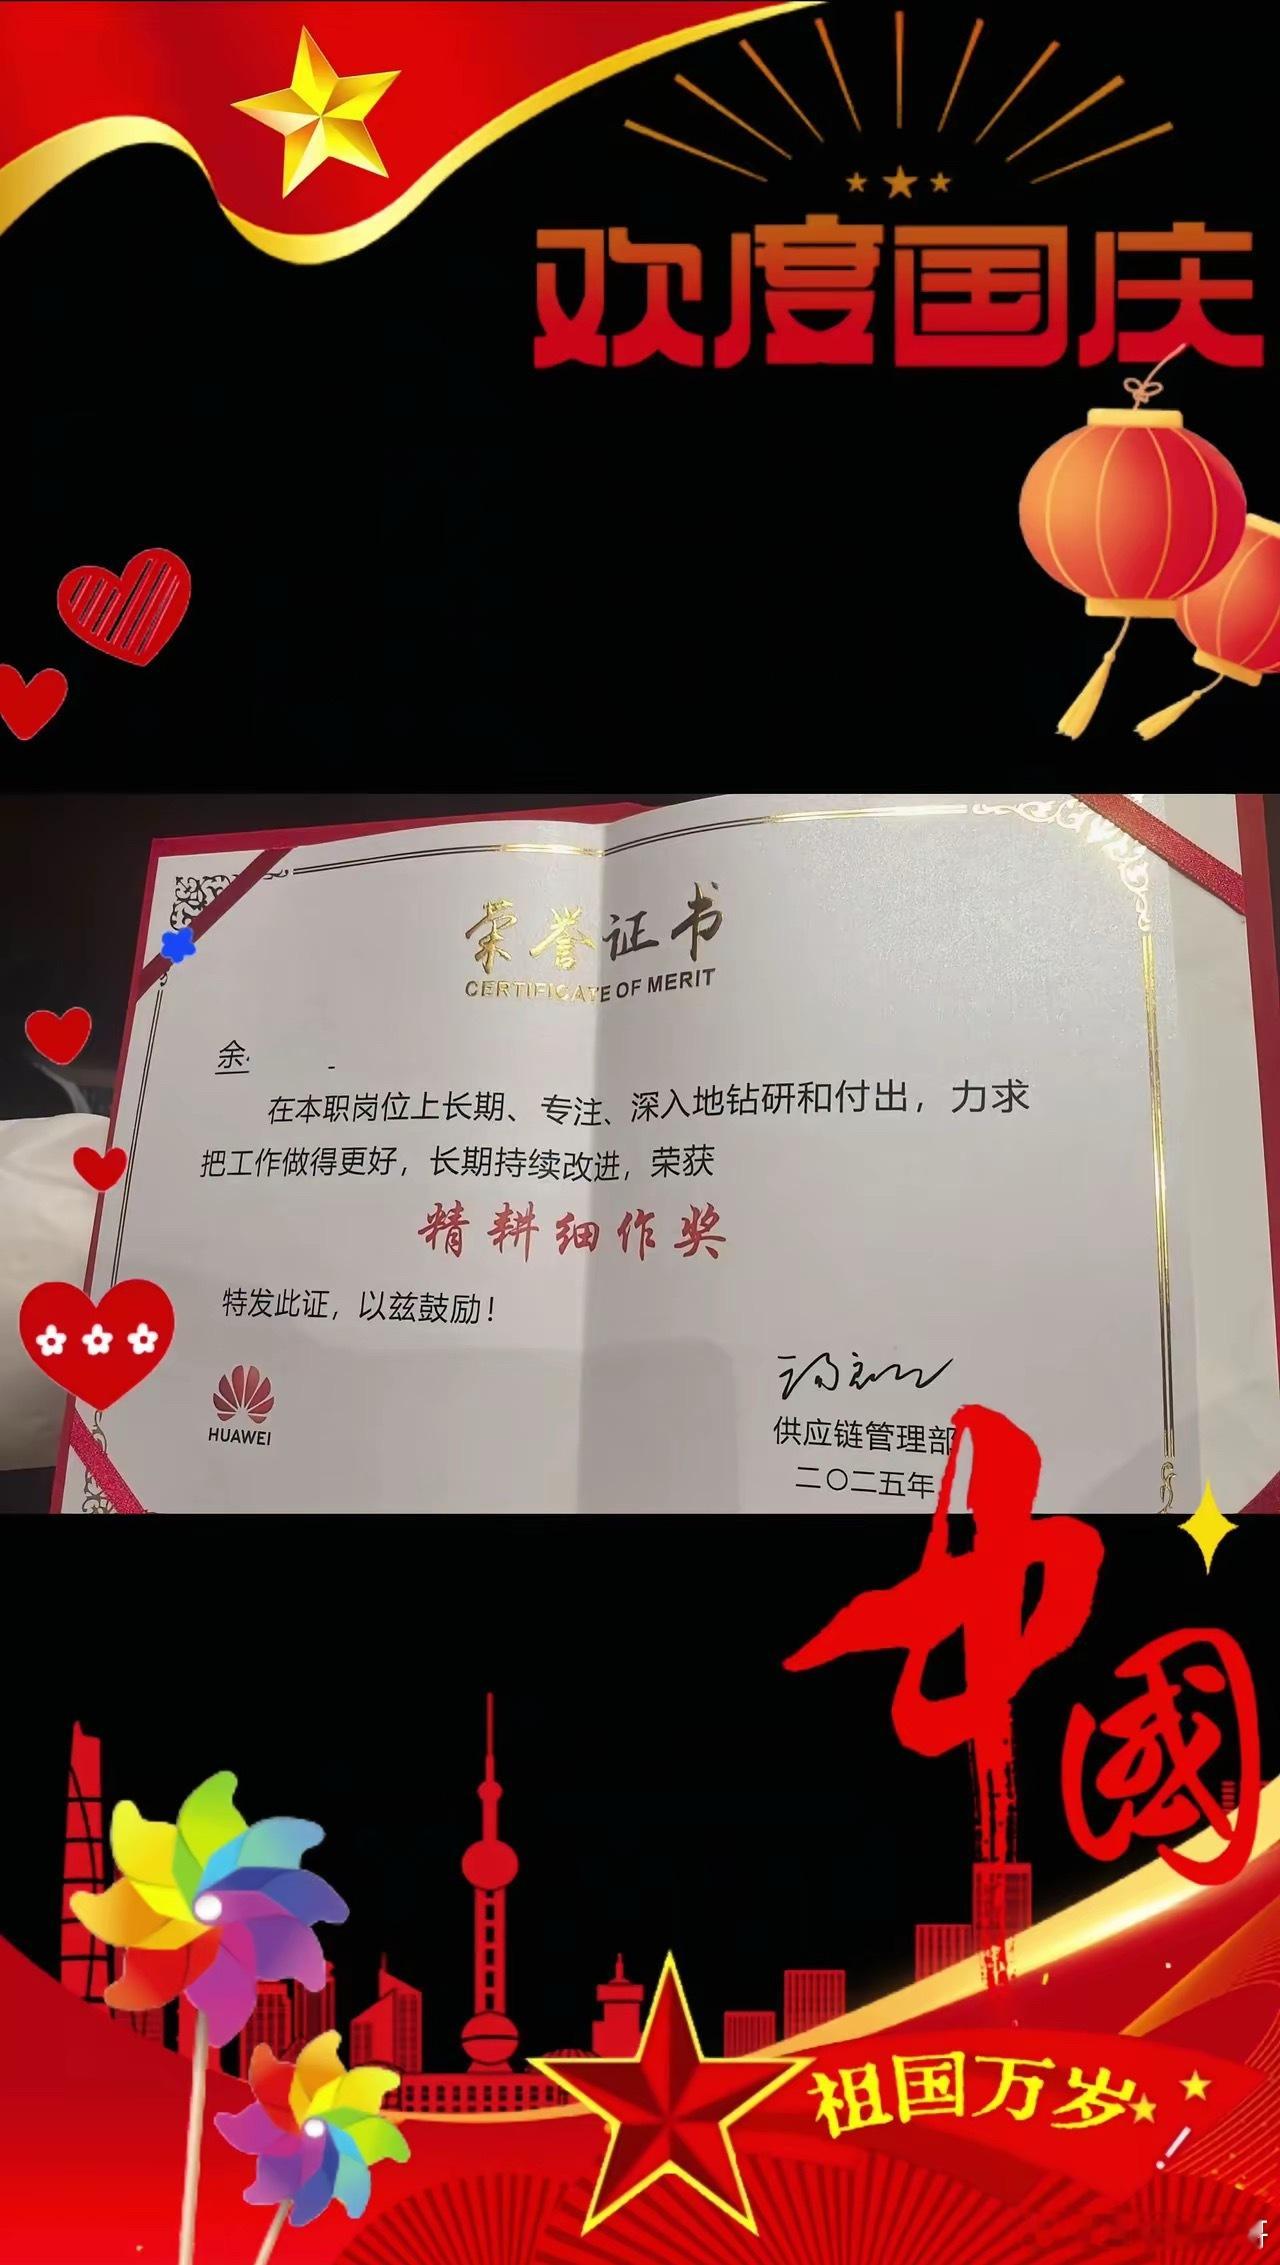 欢度国庆
荣誉证书
CERTIFICATE OF MERIT
余
在本职岗位上长期、专注、深入地钻研和付出，力求
把工作做得更好，长期持续改进，荣获
精耕细作奖
特发此证，以兹鼓励！
HUAWEI
供应链管理部
二〇二五年
中國
祖国万岁